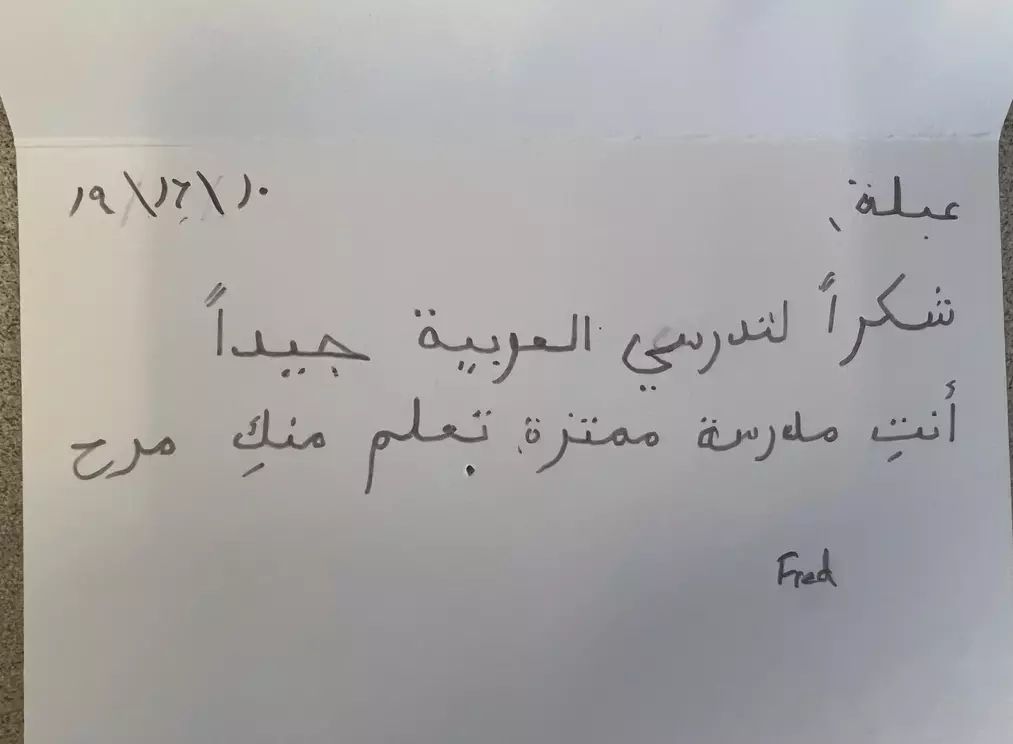 عبلة، ١٠\١٢\١٩
شكراً لتدرسي العربية جيداً
أنتِ مدرسة ممتزة. تعلم منكِ مرح
Fred